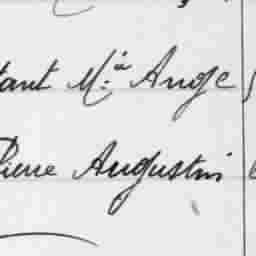 tant M.ia Ange
Pierre Augustin